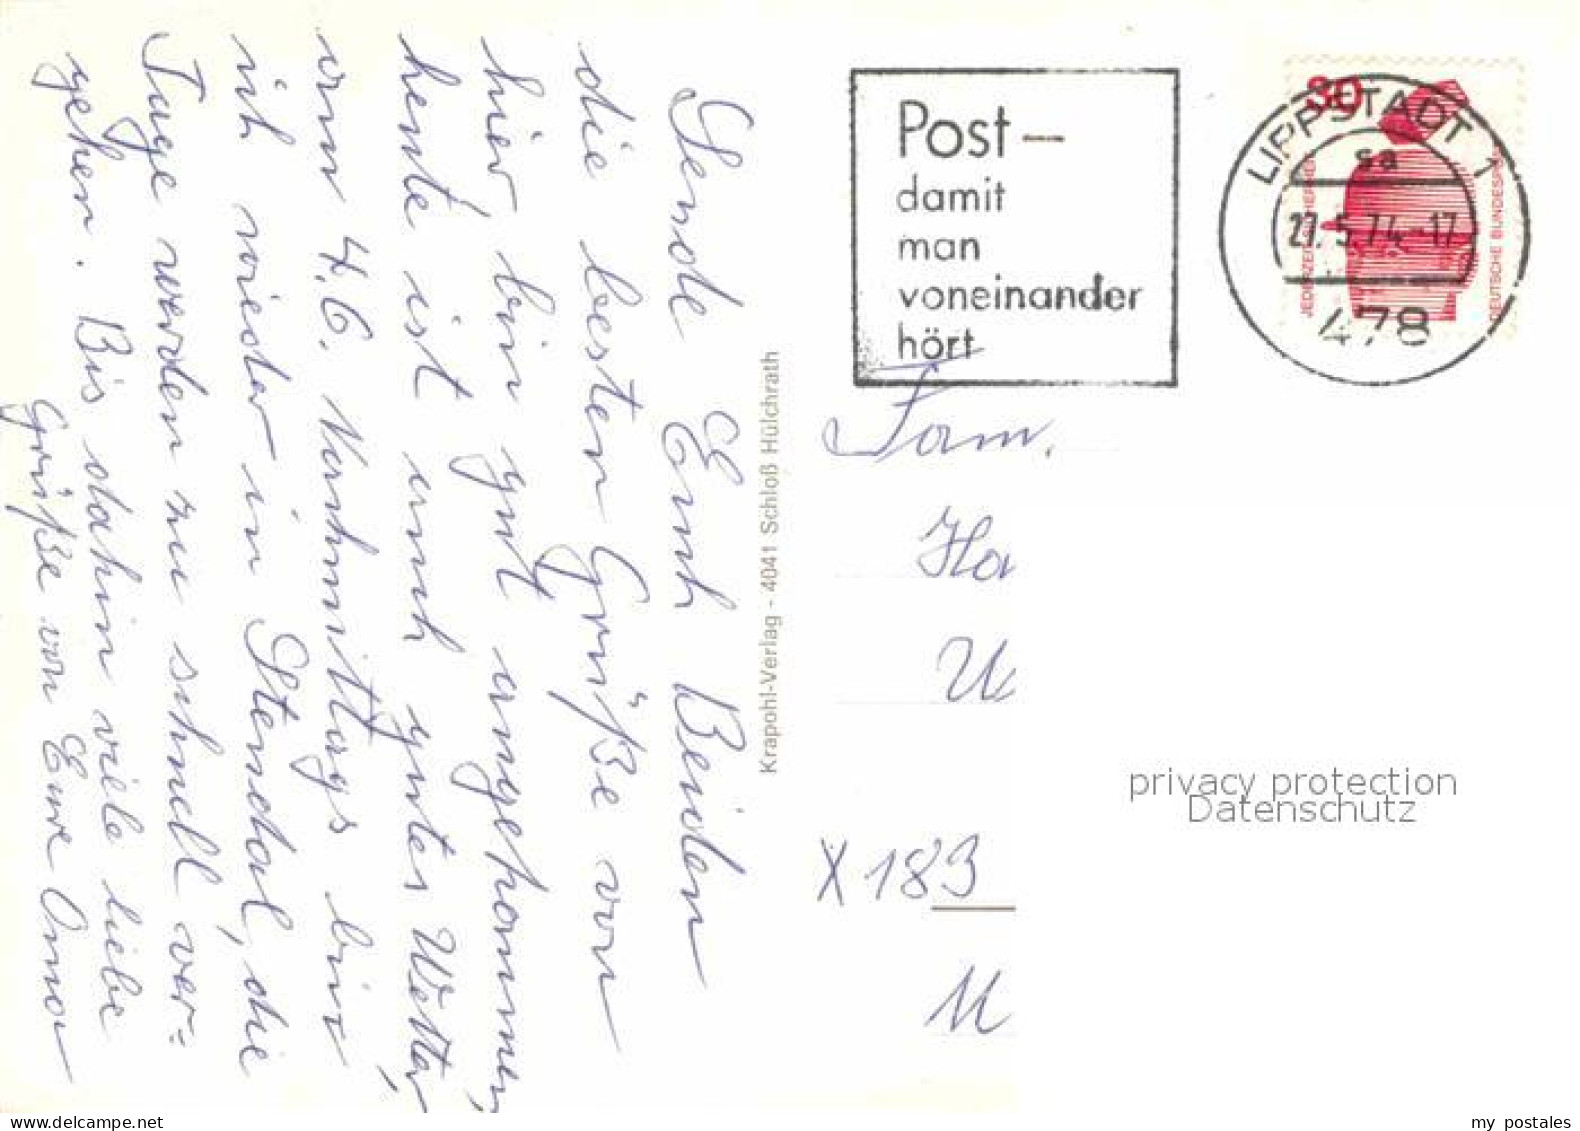 Sende Euch Beiden
die besten Grüße von
hier, bin gut angekommen,
heute ist auch gutes Wetter,
am 4.6. Nachmittags bin
ich wieder in Stendal, die
Tage werden zu schnell ver=
gehen. Bis dahin viele liebe
Grüße von Eure Oma
Krapohl-Verlag - 4041 Schloß Hülchrath
Post –
damit
man
voneinander
hört
30
JEDERZEIT SICHERHEIT
DEUTSCHE BUNDESPOST
LIPPSTADT 1
sa
27.5.74-17
478
Fam.
Ha
U
X 183
M
privacy protection
Datenschutz
my postales